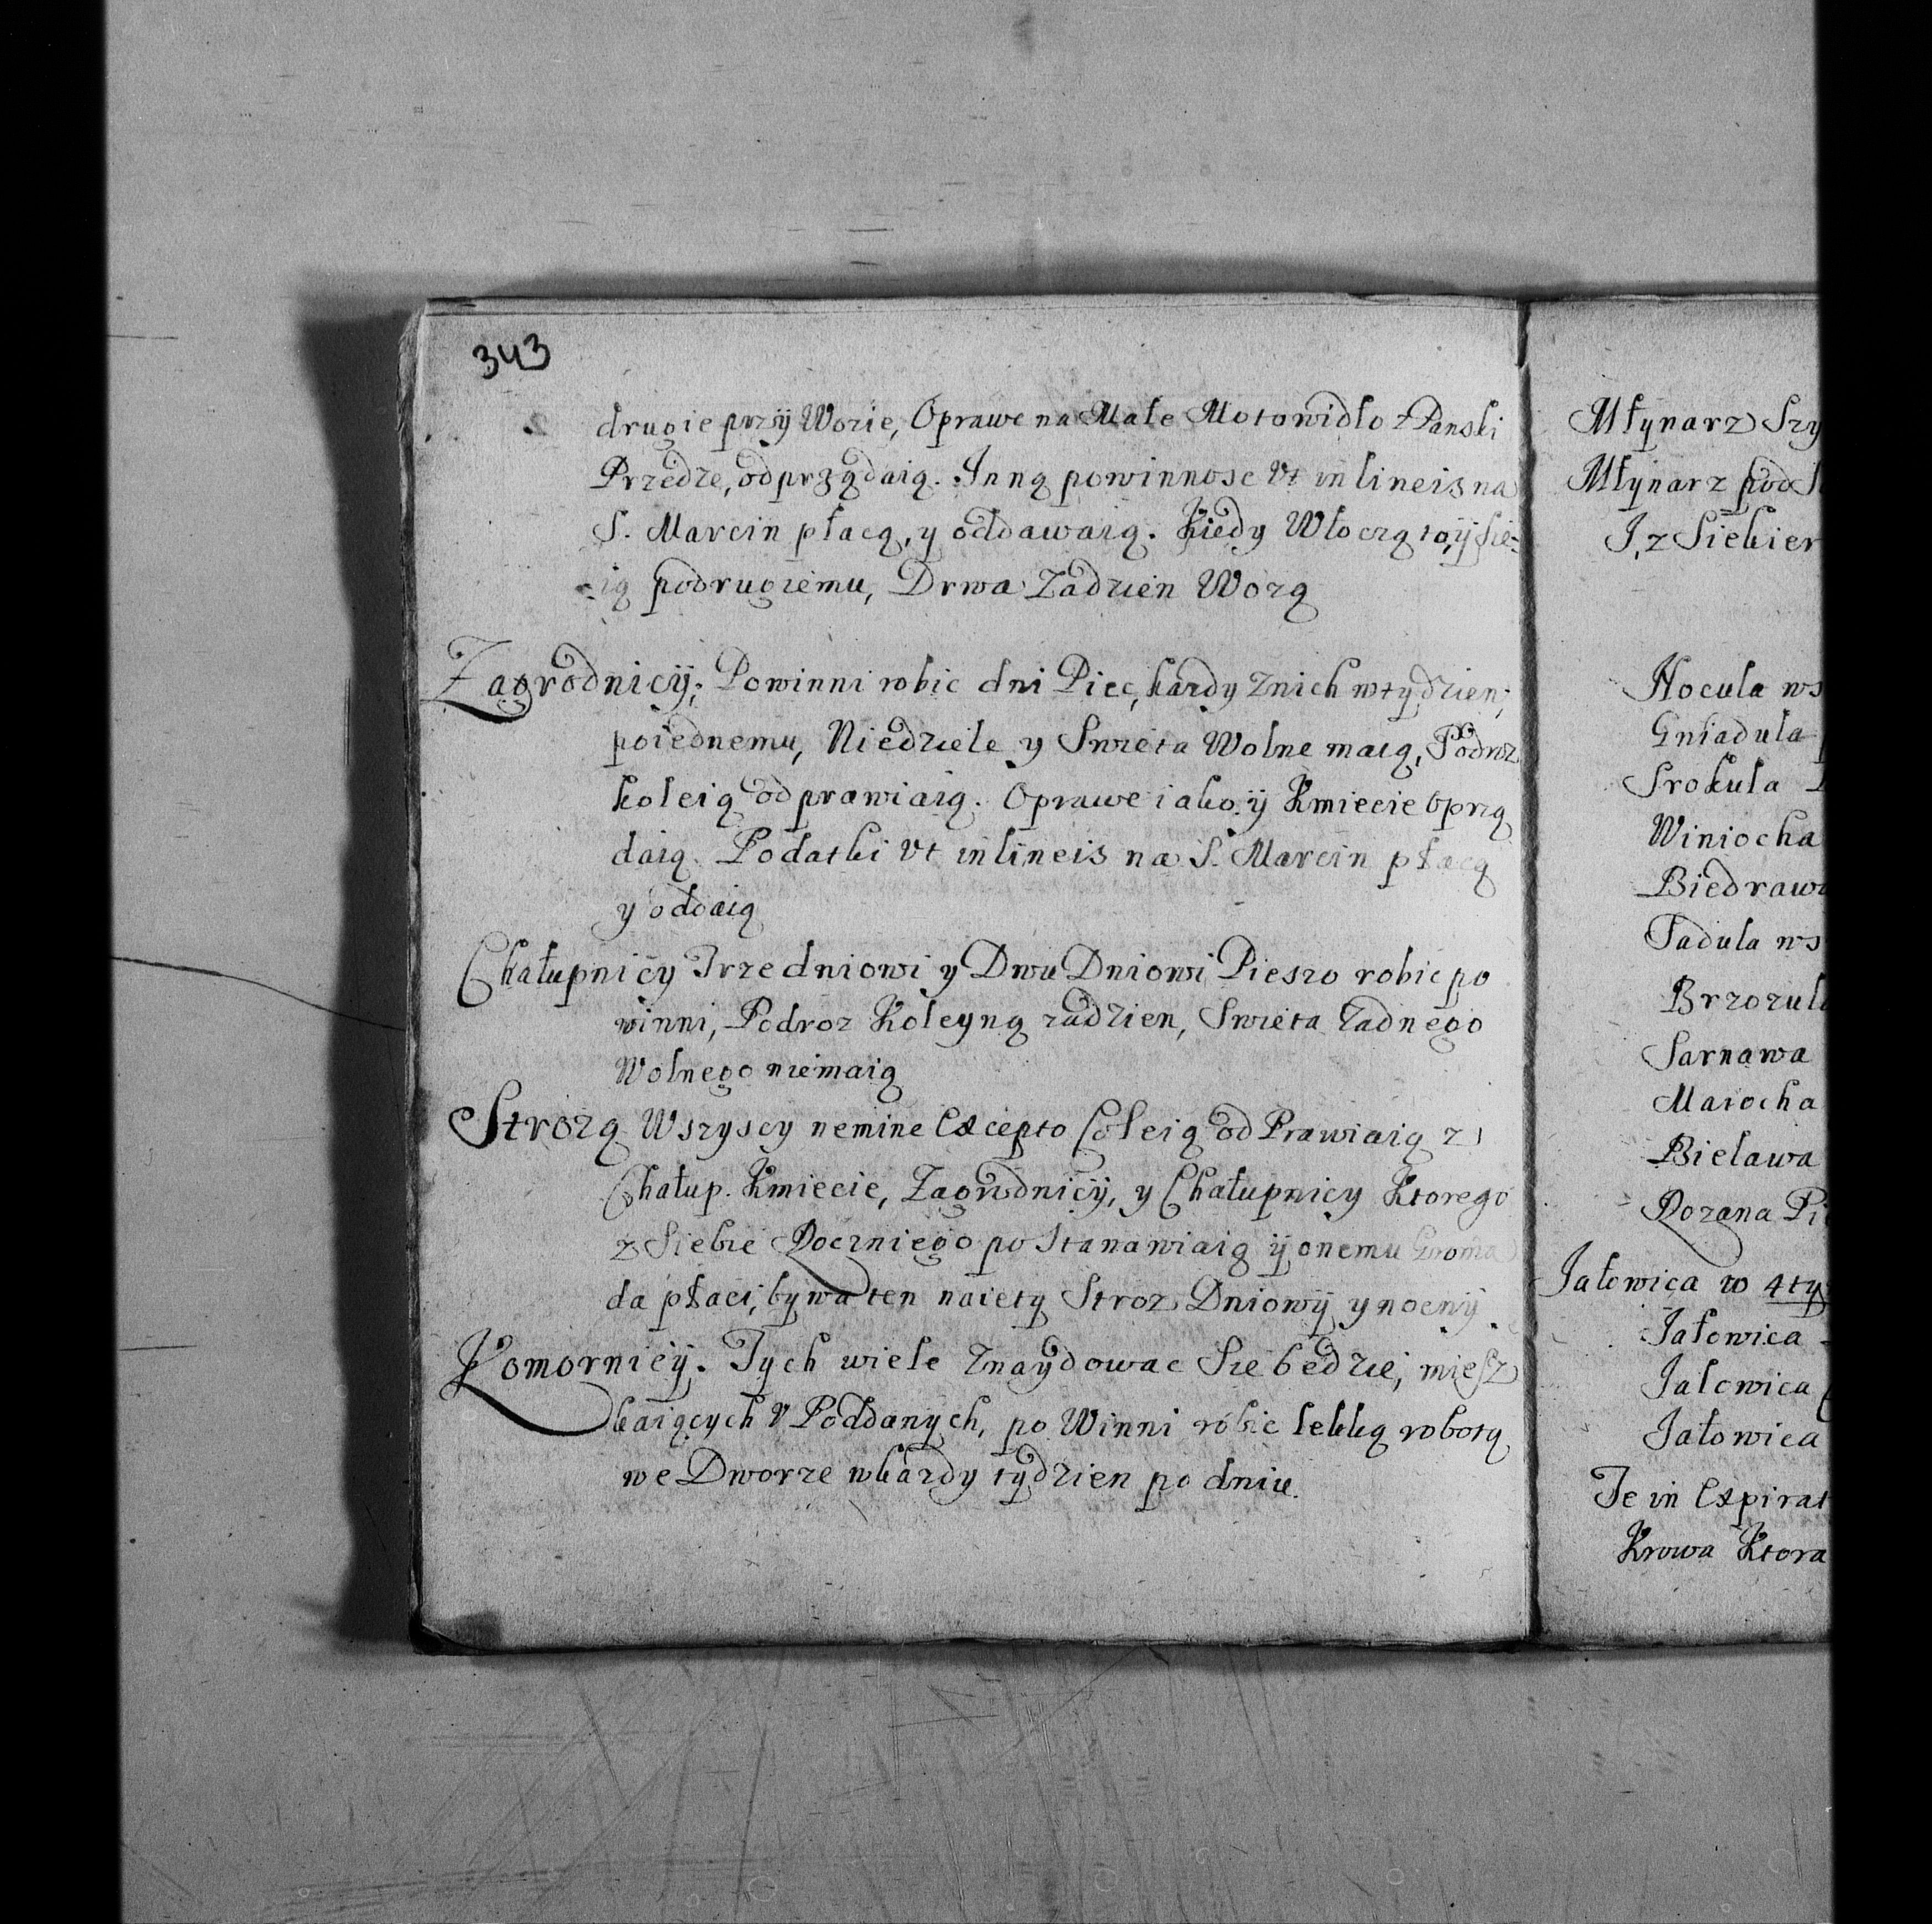 343
drugie przÿ Wozie, Oprawe na Małe Motowidło z Panski
Przedze, odprządaią. Inną powinnosc Vt in lineis na
S. Marcin płacą, y oddawaią. Kiedy Włoczą to, ÿ Sie-
ią podrugiemu, Drwa Zadzien Wozą
Zagrodnicÿ; Powinni robic dni Piec, kazdy Znich w tydzien;
poiednemu, Niedziele y Swieta Wolne maią, Podroz
koleią odprawiaią. Oprawe iako ÿ Kmiecie Oprzą
daią. Podatki Vt in lineis na S. Marcin płacą
y oddaią
Chałupnicy Trzedniowi y Dwu Dniowi Pieszo robic po
winni, Podroz Koleyną zadzien, Swieta Zadnego
Wolnego niemaią
Strozą Wszyscy nemine Excepto Coleią odPrawiaią z
Chałup. Kmiecie, Zagrodnicÿ, y Chałupnicy Ktorego
z Siebie Roczniego postanawiaią ÿ onemu Groma
da płaci, bywa ten naiety Stroz Dniowÿ y nocnÿ.
Komornicÿ. Tych wiele Znaydowac Sie bedzie, miesz
kaiących V Poddanych, po Winni robic lekką robotą
we Dworze wkazdy tydzien po dniu.
Młynarz Szy
Młynarz pod
J, z Siekier
Hocula ws
Gniadula
Srokula
Winiocha
Biedrawa
Tadula ws
Brzozula
Sarnawa
Maiocha
Bielawa
Rozana Pi
Jałowica w 4ty
Jałowica
Jałowica
Jałowica
Te in Expirat
Krowa Ktora